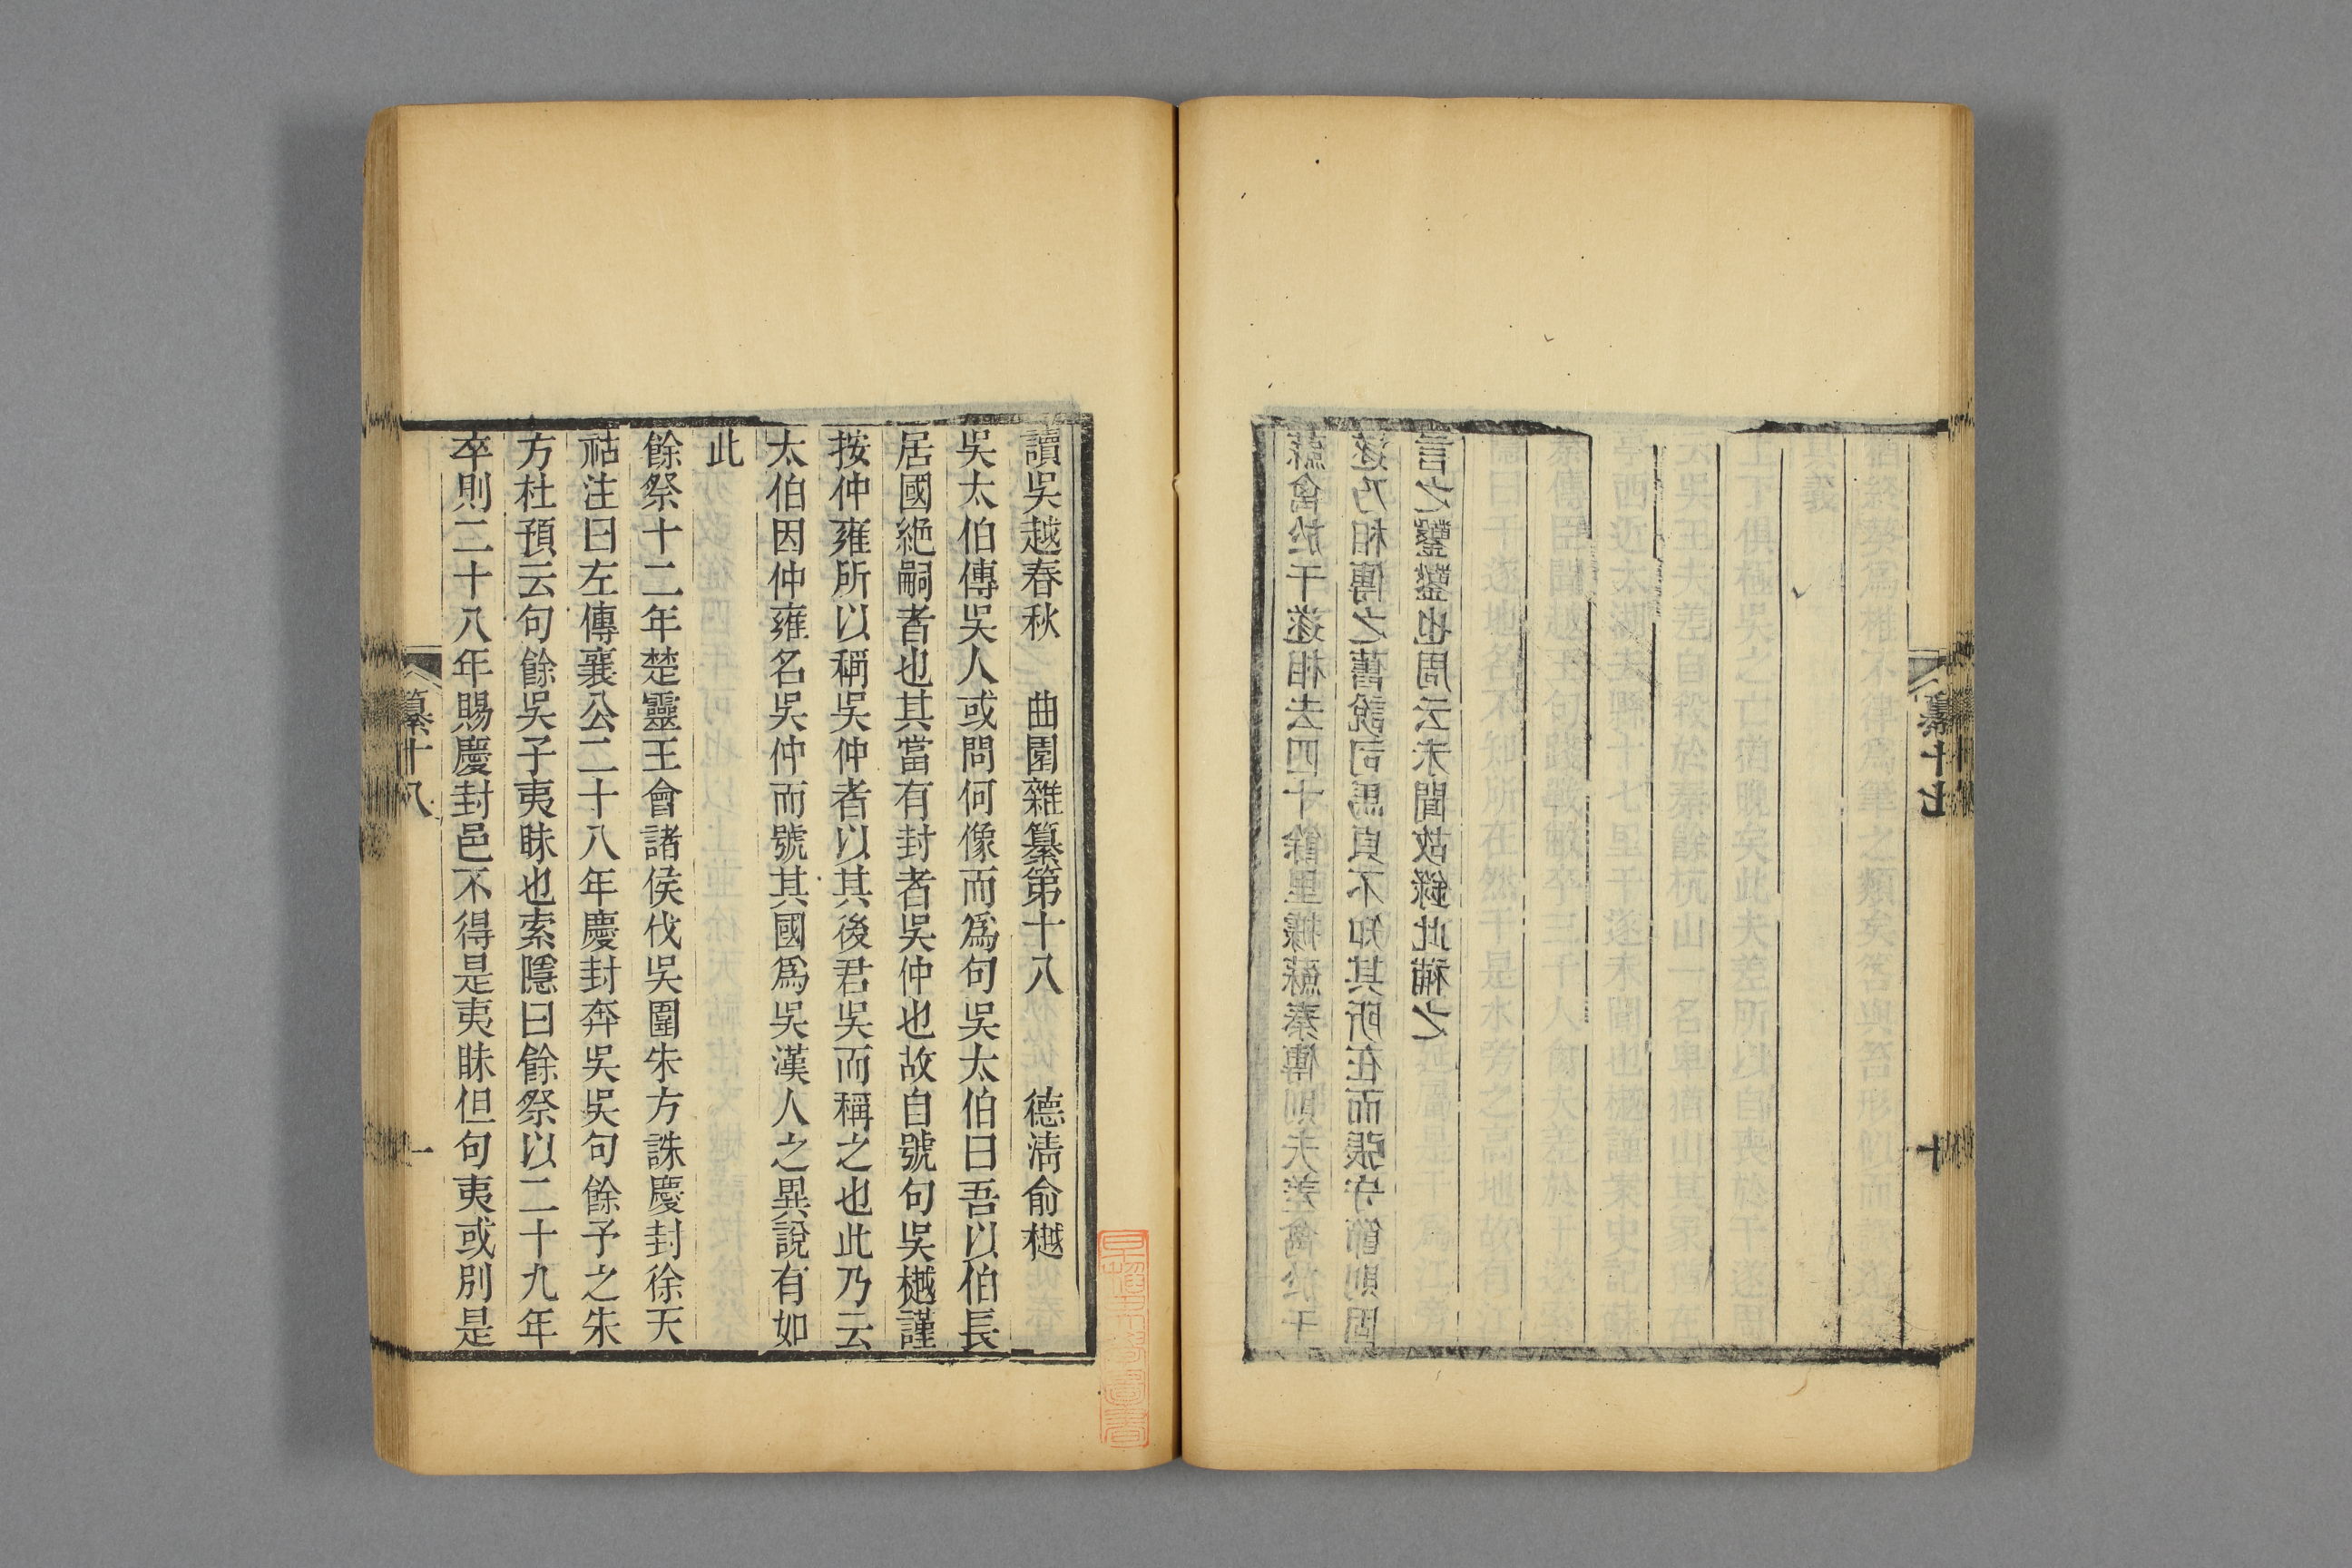 蘇禽於干遂相去四十餘里據蘇秦傳則夫差禽於干
遂乃相傳之舊說司馬貞不知其所在而張守節則固
言之鑿鑿也周云未聞故錄此補之
纂十七
十
讀吳越春秋　曲園雜纂第十八　德清俞樾
吳太伯傳吳人或問何像而為句吳太伯曰吾以伯長
居國絶嗣者也其當有封者吳仲也故自號句吳樾謹
按仲雍所以稱吳仲者以其後君吳而稱之也此乃云
太伯因仲雍名吳仲而號其國為吳漢人之異說有如
此
餘祭十二年楚靈王會諸侯伐吳圍朱方誅慶封徐天
祜注曰左傳襄公二十八年慶封奔吳吳句餘予之朱
方杜預云句餘吳子夷眛也索隱曰餘祭以二十九年
卒則二十八年賜慶封邑不得是夷眛但句夷或別是
纂十八
一